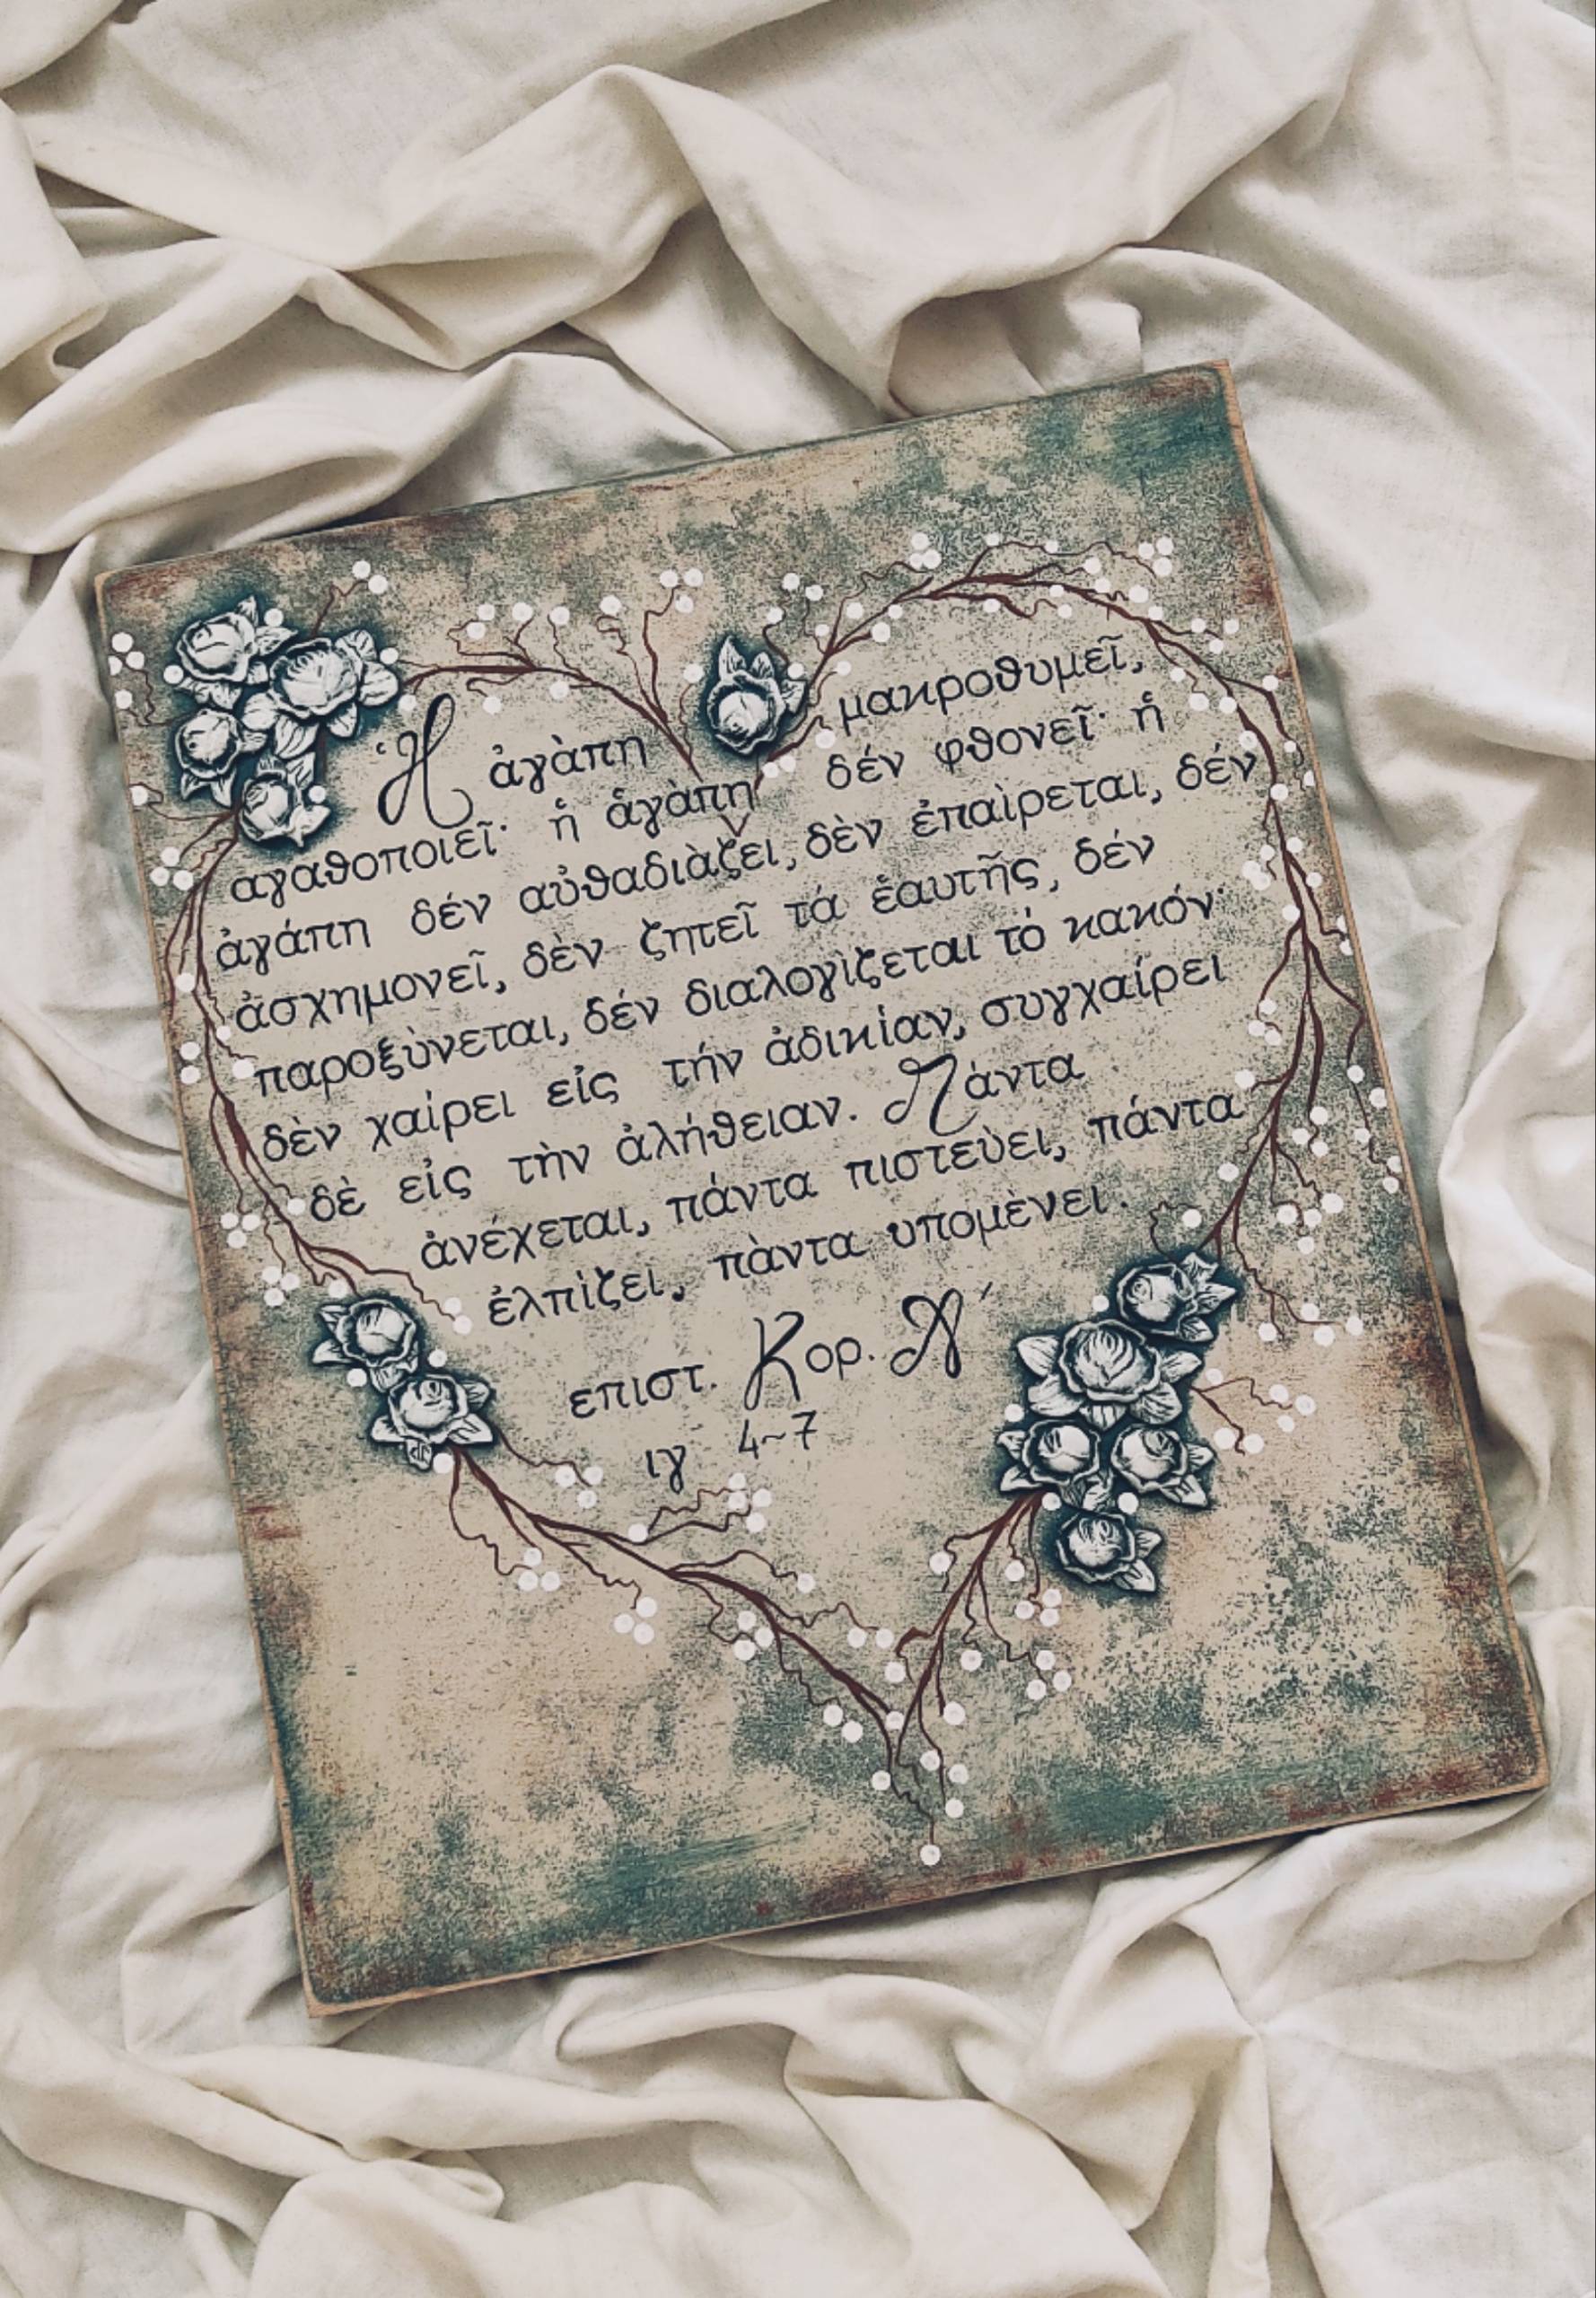 Ἡ ἀγὰπη μακροθυμεῖ,
αγαθοποιεῖ· ἡ ἀγὰπη δέν φθονεῖ· ἡ
ἀγάπη δέν αὐθαδιὰζει, δὲν ἐπαὶρεται, δέν
ἀσχημονεῖ, δὲν ζητεῖ τά ἑαυτῆς, δέν
παροξὺνεται, δέν διαλογὶζεται τὸ κακόν·
δὲν χαίρει εἰς τήν ἀδικὶαν, συγχαίρει
δὲ εἰς τὴν ἀλήθειαν. Πὰντα
ἀνέχεται, πάντα πιστεὺει, πάντα
ἐλπὶζει, πὰντα υπομὲνει.
επιστ. Κορ. Α΄
ιγ 4~7